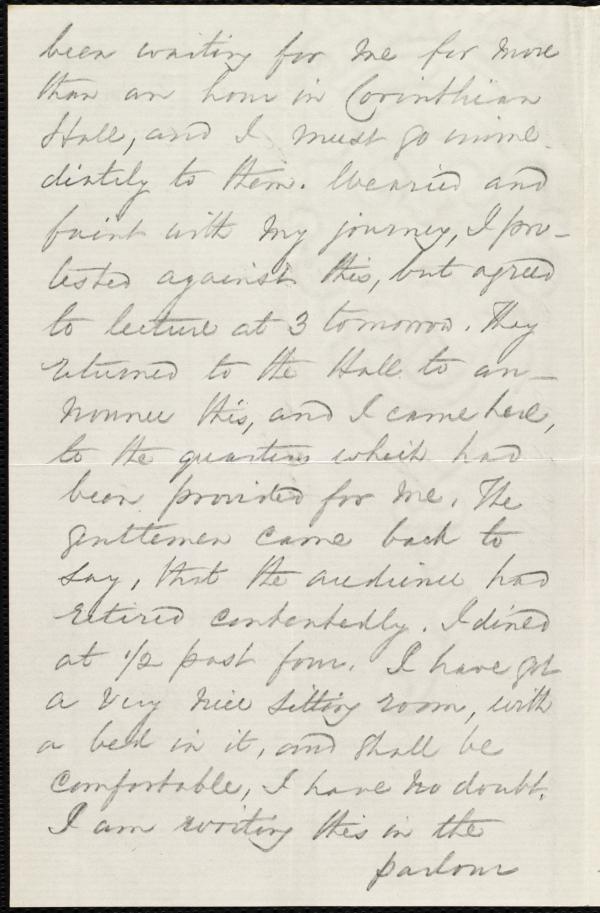 been waiting for me for more
than an hour in Corinthian
Hall, and I must go imme-
diately to them. Wearied and
faint with my journey, I pro-
tested against this, but agreed
to lecture at 3 tomorrow. They
returned to the Hall to an-
nounce this, and I came here,
to the quarters which had
been provided for me. The
gentlemen came back to
say, that the audience had
retired contentedly. I dined
at 1/2 past four. I have got
a very nice sitting room, with
a bed in it, and shall be
comfortable, I have no doubt.
I am writing this in the
parlour